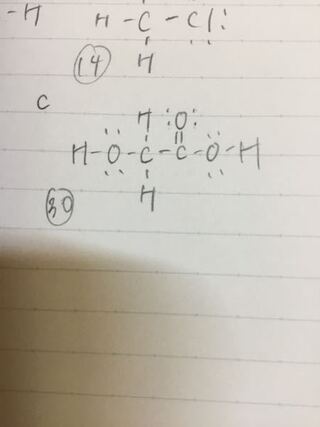 -H H-C-Cl:
(14) H
C
H :O:
H-O-C-C-O-H
(30) H